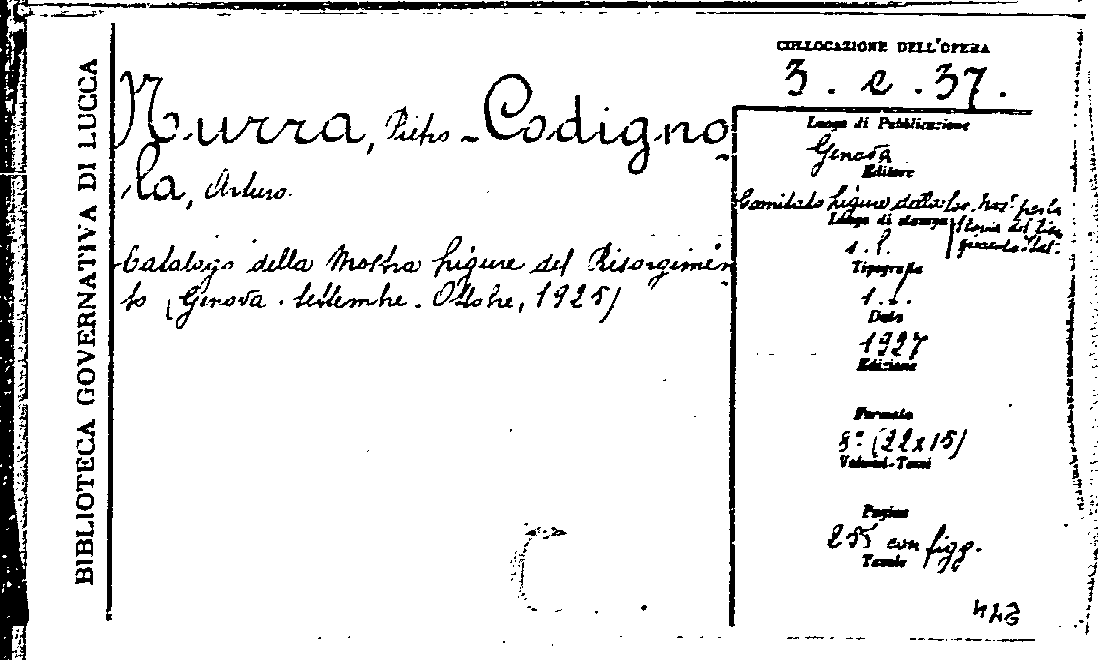 BIBLIOTECA GOVERNATIVA DI LUCCA
COLLOCAZIONE DELL'OPERA
3. e. 37.
Nurra, Pietro - Codigno-
la, Arturo.
Catalogo della Mostra Ligure del Risorgimen-
to (Genova. Settembre. Ottobre, 1925)
Luogo di Pubblicazione
Genova
Editore
Comitato Ligure della Soc. Naz. per la
storia del Ris
Luogo di stampa
s. l.
Tipografia
Data
1927
Edizione
Formato
8° (22x15)
Volumi-Tomi
Pagine
255 con figg.
Tavole